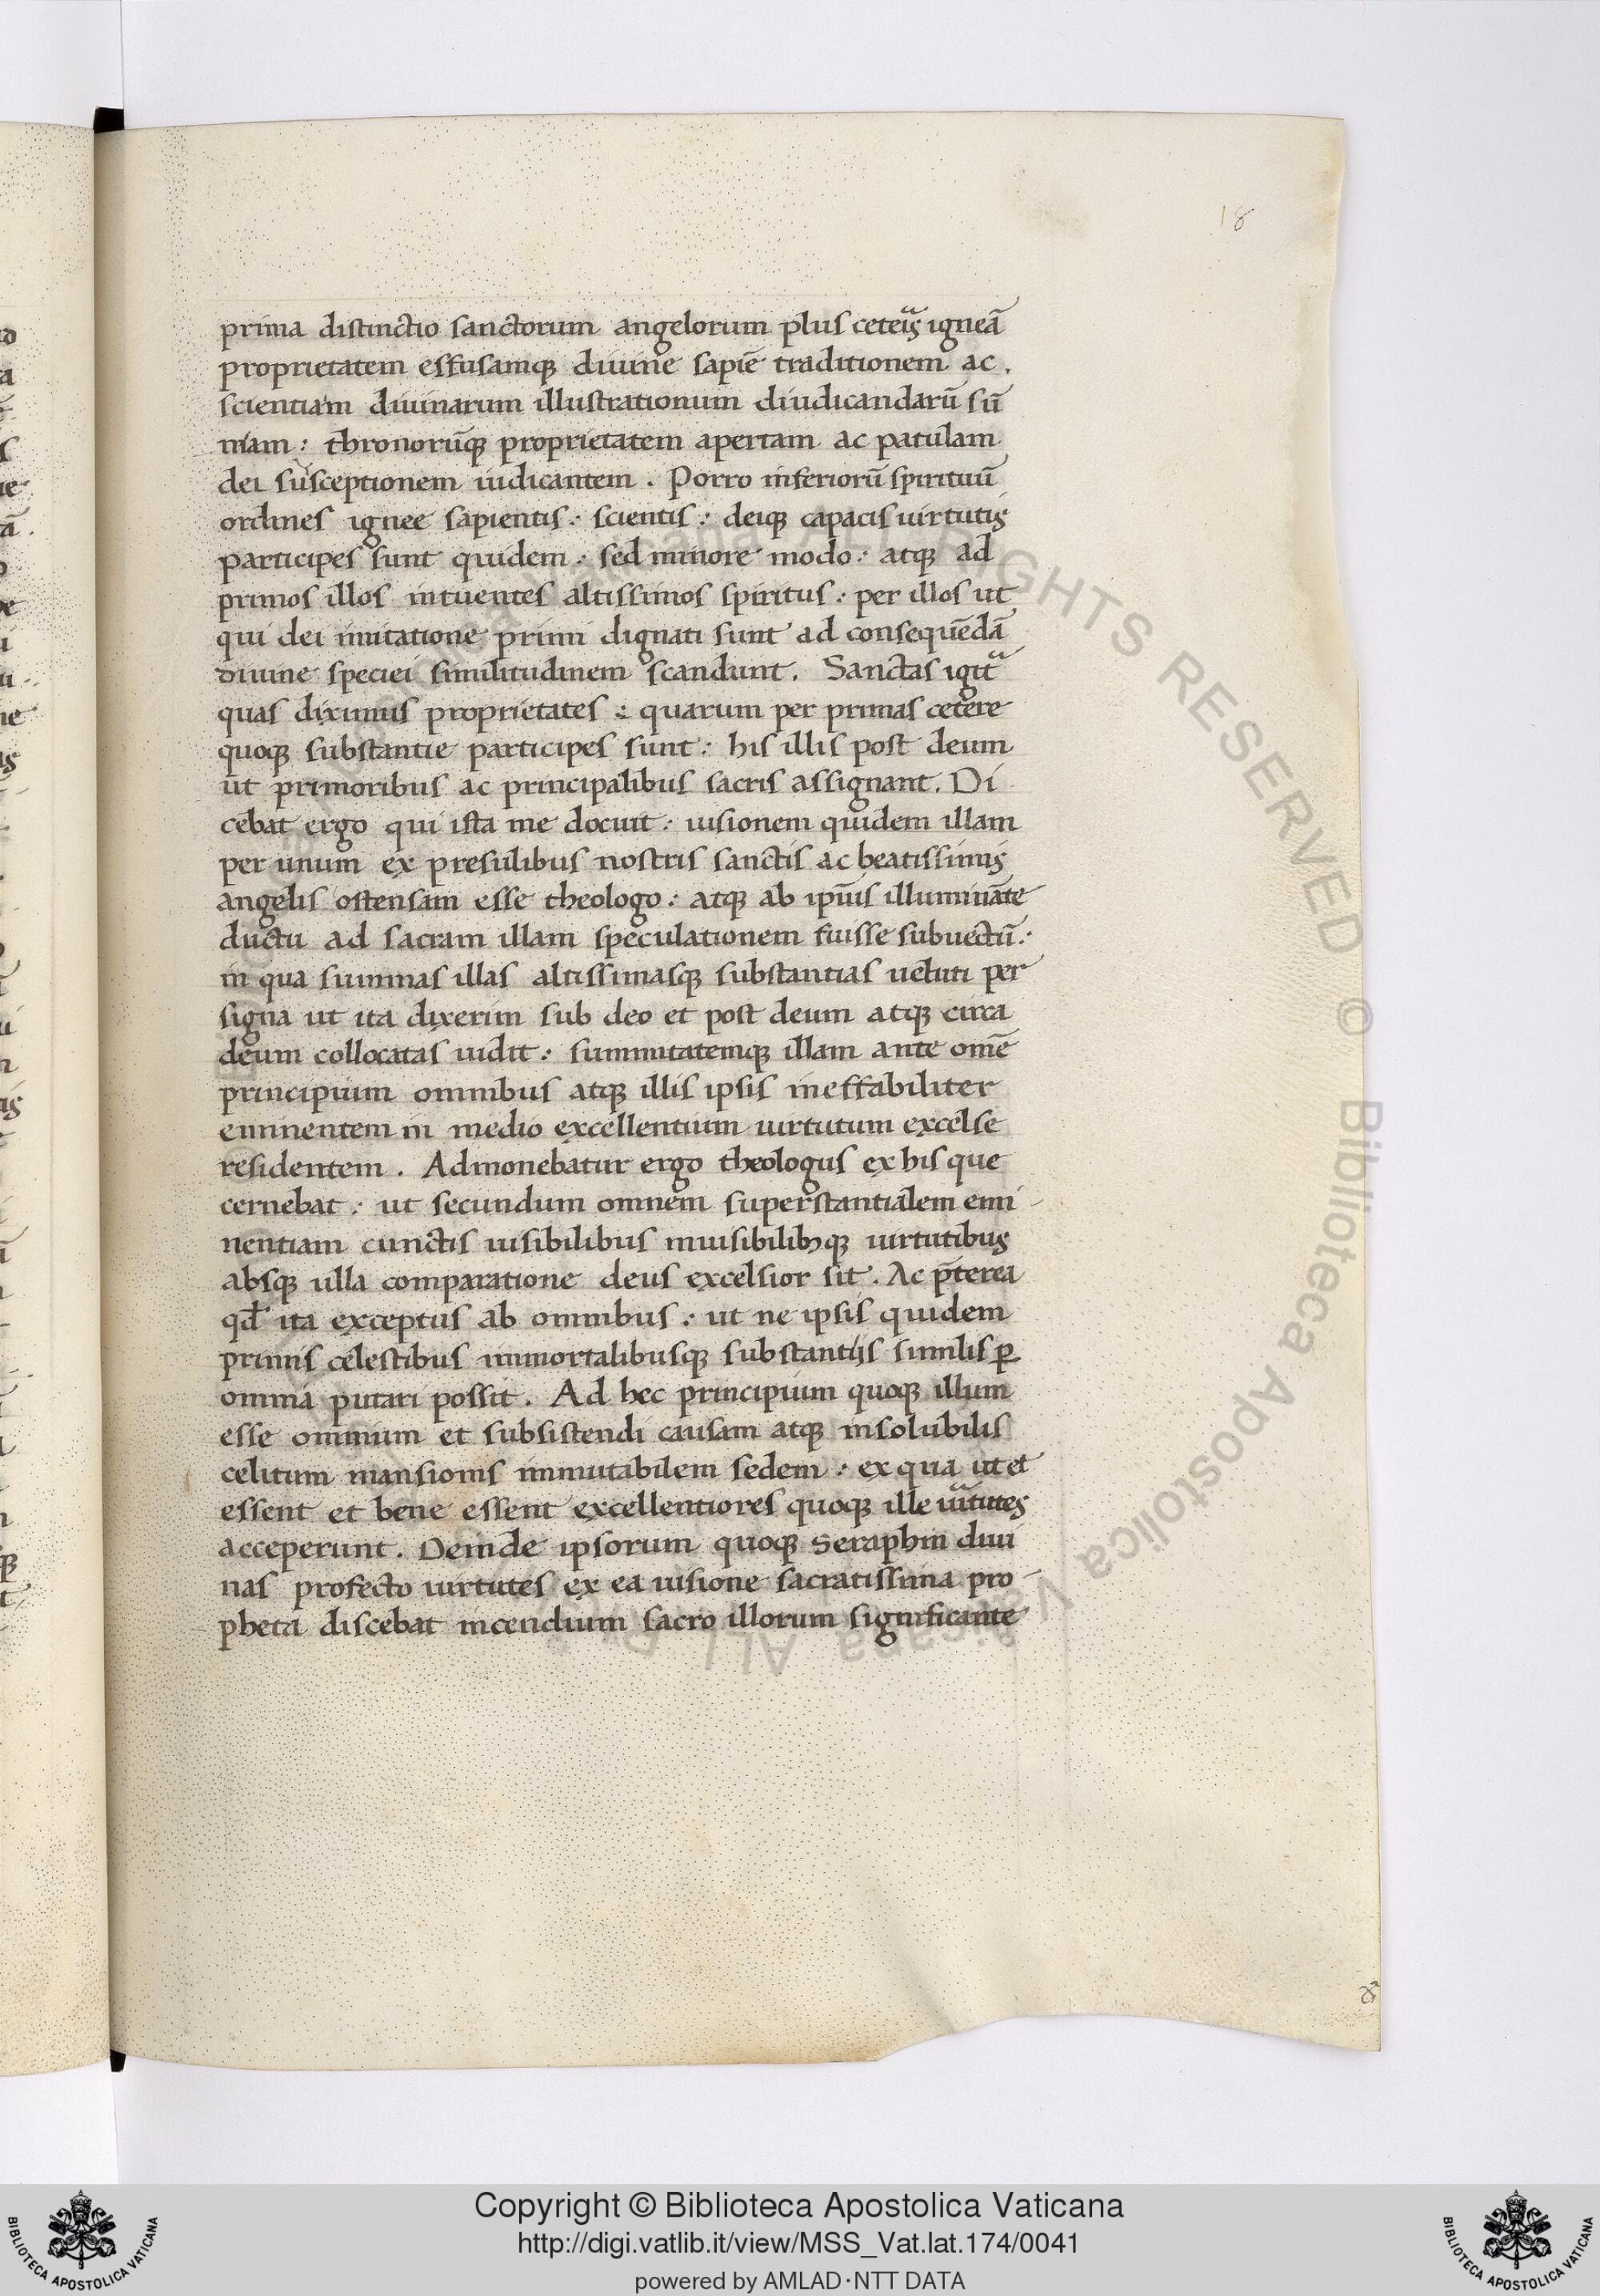 18
prima distinctio sanctorum angelorum plus ceteris igneā
proprietatem effusamq; diuine sapiē traditionem ac
scientiam diuinarum illustrationum diudicandarū sū
mam : thronorūq; proprietatem apertam ac patulam
dei susceptionem indicantem . Porro inferiorū spirituū
ordines ignee sapientis : scientis : deiq; capacis uirtutis
participes sunt quidem : sed minore modo : atq; ad
primos illos intuentes altissimos spiritus : per illos ut
qui dei imitatione primi dignati sunt ad consequēdā
diuine speciei similitudinem scandunt . Sanctas igit
quas diximus proprietates : quarum per primas cetere
quoq; substantie participes sunt : his illis post deum
ut primoribus ac principalibus sacris assignant . Di
cebat ergo qui ista me docuit : uisionem quidem illam
per unum ex presulibus nostris sanctis ac beatissimis
angelis ostensam esse theologo : atq; ab ipīus illumināte
ductu ad sacram illam speculationem fuisse subuectū :
in qua summas illas altissimasq; substantias ueluti per
signa ut ita dixerim sub deo et post deum atq; circa
deum collocatas uidit : summitatemq; illam ante omē
principium omnibus atq; illis ipsis ineffabiliter
eminentem in medio excellentium uirtutum excelse
residentem . Admonebatur ergo theologus ex his que
cernebat : ut secundum omnem superstantialem emi
nentiam cunctis uisibilibus inuisibilibq; uirtutibus
absq; ulla comparatione deus excelsior sit . Ac p̄terea
qđ ita exceptus ab omnibus : ut ne ipsis quidem
primis celestibus immortalibusq; substantijs similis ꝑ
omnia putari possit . Ad hec principium quoq; illum
esse omnium et subsistendi causam atq; insolubilis
celitum mansionis immutabilem sedem : ex qua ut et
essent et bene essent excellentiores quoq; ille uirtutes
acceperunt . Deinde ipsorum quoq; seraphin diui
nas profecto uirtutes ex ea uisione sacratissima pro-
pheta discebat incendium sacro illorum significante
Copyright © Biblioteca Apostolica Vaticana
http://digi.vatlib.it/view/MSS_Vat.lat.174/0041
powered by AMLAD·NTT DATA
BIBLIOTECA APOSTOLICA VATICANA
BIBLIOTECA APOSTOLICA VATICANA